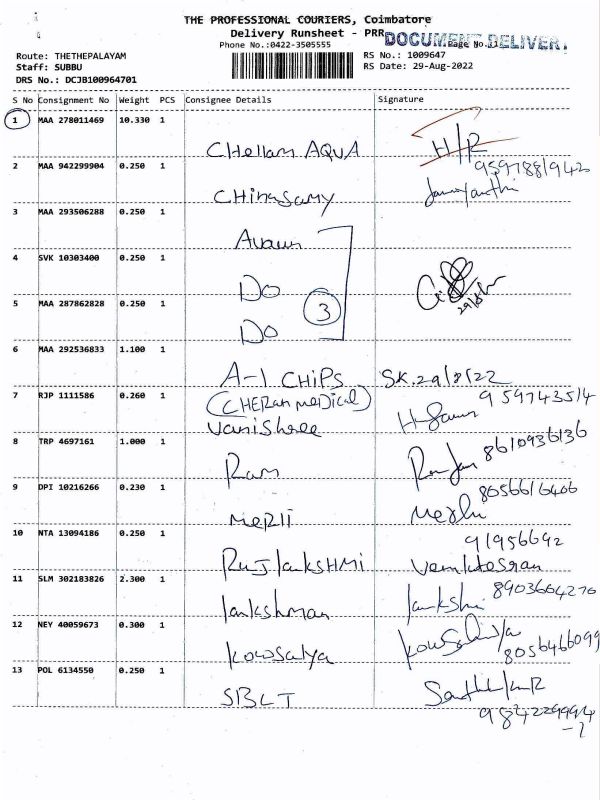 THE PROFESSIONAL COURIERS, Coimbatore
Delivery Runsheet - PRR
DOCUMENT DELIVERY
Phone No.:0422-3505555
Route: THETHEPALAYAM
RS No.: 1009647
Staff: SUBBU
RS Date: 29-Aug-2022
DRS No.: DCJB100964701
S No Consignment No Weight PCS Consignee Details Signature
1 MAA 278011469 10.330 1
Chellam AQUA H/R
9597881942
2 MAA 942299904 0.250 1
Chinasamy
3 MAA 293506288 0.250 1
4 SVK 10303400 0.250 1
Do
3
29/8/22
5 MAA 287862828 0.250 1
Do
6 MAA 292536833 1.100 1
A-1 CHiPS SK.29/8/22
7 RJP 1111586 0.260 1
(CHERan meDical)
959743514
vanishree
8 TRP 4697161 1.000 1
8610936136
Ram
9 DPI 10216266 0.230 1
8056616406
MeRli Merli
10 NTA 13094186 0.250 1
91956692
RuJlaKSHMi
11 SLM 302183826 2.300 1
8903664270
lakshman
12 NEY 40059673 0.300 1
kowsalya kowsalya
8056466099
13 POL 6134550 0.250 1
SBLT
9842299914
-1